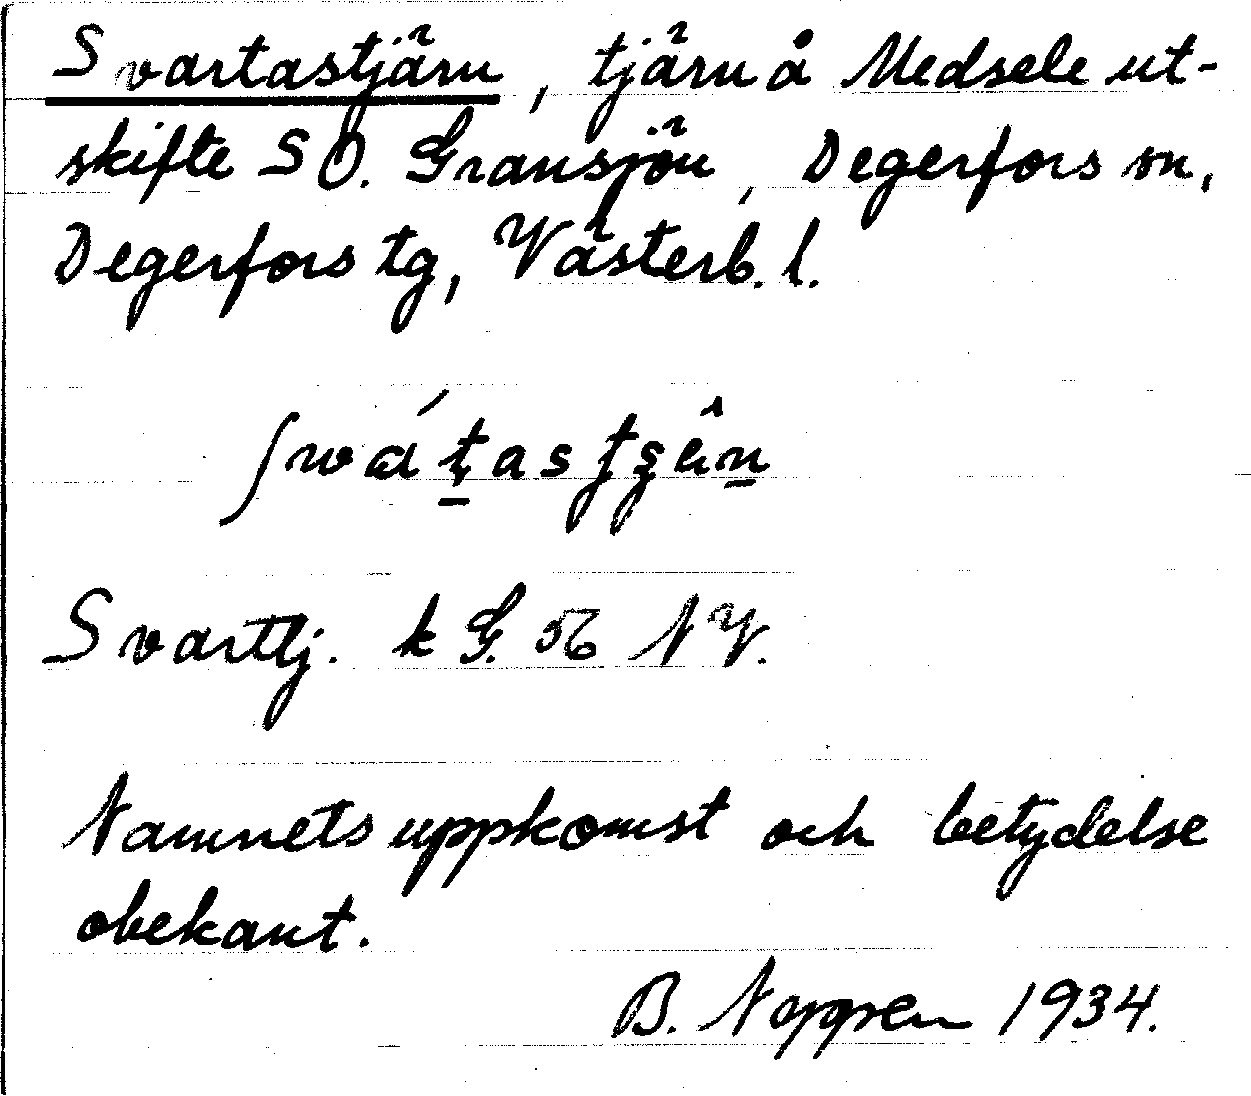 Svartastjärn, tjärn å Medsele ut-
skifte SO. Gransjön, Degerfors sn,
Degerfors tg, Västerb. l.
Svarttj. k G. 56 NV.
Namnets uppkomst och betydelse
obekant.
B. Noppen 1934.